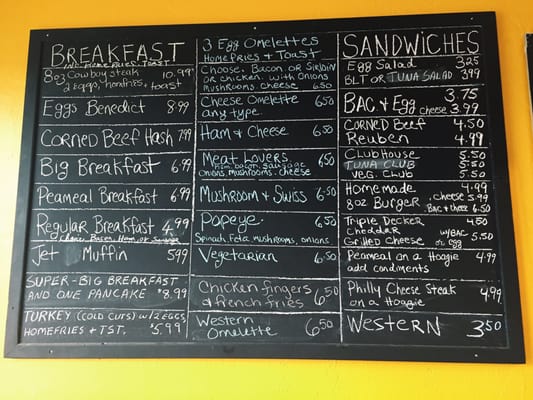 BREAKFAST
INC HOMEFRIES TOAST
8oz Cowboy steak 10.99
2 eggs, homefries, toast
Eggs Benedict 8.99
Corned Beef Hash 7.99
Big Breakfast 6.99
Peameal Breakfast 6.99
Regular Breakfast 4.99
Choice Bacon Ham or Sausage
Jet Muffin 5.99
SUPER-BIG BREAKFAST
AND ONE PANCAKE $8.99
TURKEY (COLD CUTS) w/2 EGGS
HOMEFRIES + TST. $5.99
3 Egg Omelettes
HOMEFRIES + TOAST
Choose: Bacon or Sirloin
or chicken, with Onions
Mushrooms cheese 6.50
Cheese Omelette 6.50
any type.
Ham & Cheese 6.50
Meat Lovers 6.50
Ham, bacon, sausage
onions, mushrooms, cheese
Mushroom & Swiss 6.50
Popeye 6.50
Spinach, Feta, mushrooms, onions
Vegetarian 6.50
Chicken fingers
& french fries 6.50
Western
Omelette 6.50
SANDWICHES
Egg Salad 3.25
BLT or TUNA SALAD 3.99
BAC & Egg 3.75
cheese 3.99
Corned Beef 4.50
Reuben 4.99
CLUBHOUSE 5.50
TUNA CLUB 5.50
VEG. CLUB 5.50
Homemade 4.99
8oz Burger cheese 5.99
Bac & cheese 6.50
Triple Decker 4.50
cheddar w/BAC
Grilled Cheese or egg 5.50
Peameal on a Hoagie 4.99
add condiments
Philly Cheese Steak 4.99
on a Hoagie
WESTERN 3.50